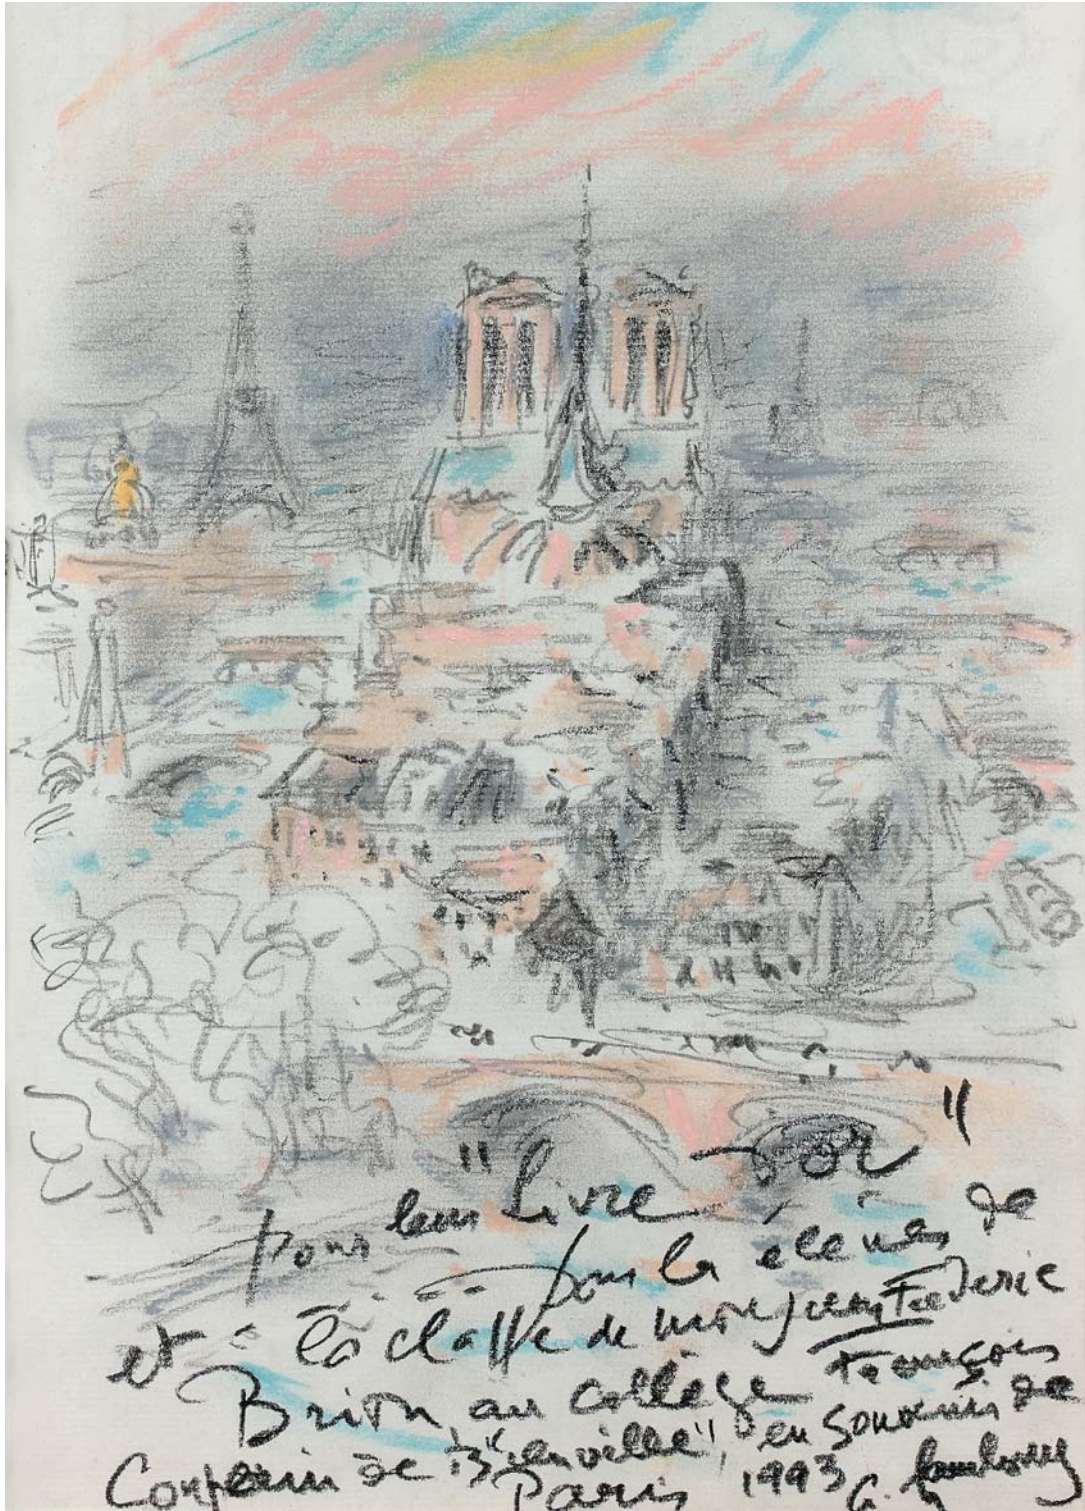 pour leur "Livre d'or"
et pour les élèves de
la classe de Frederic
Brion, au collège François
Couperin de en souvenir de
Paris 1993